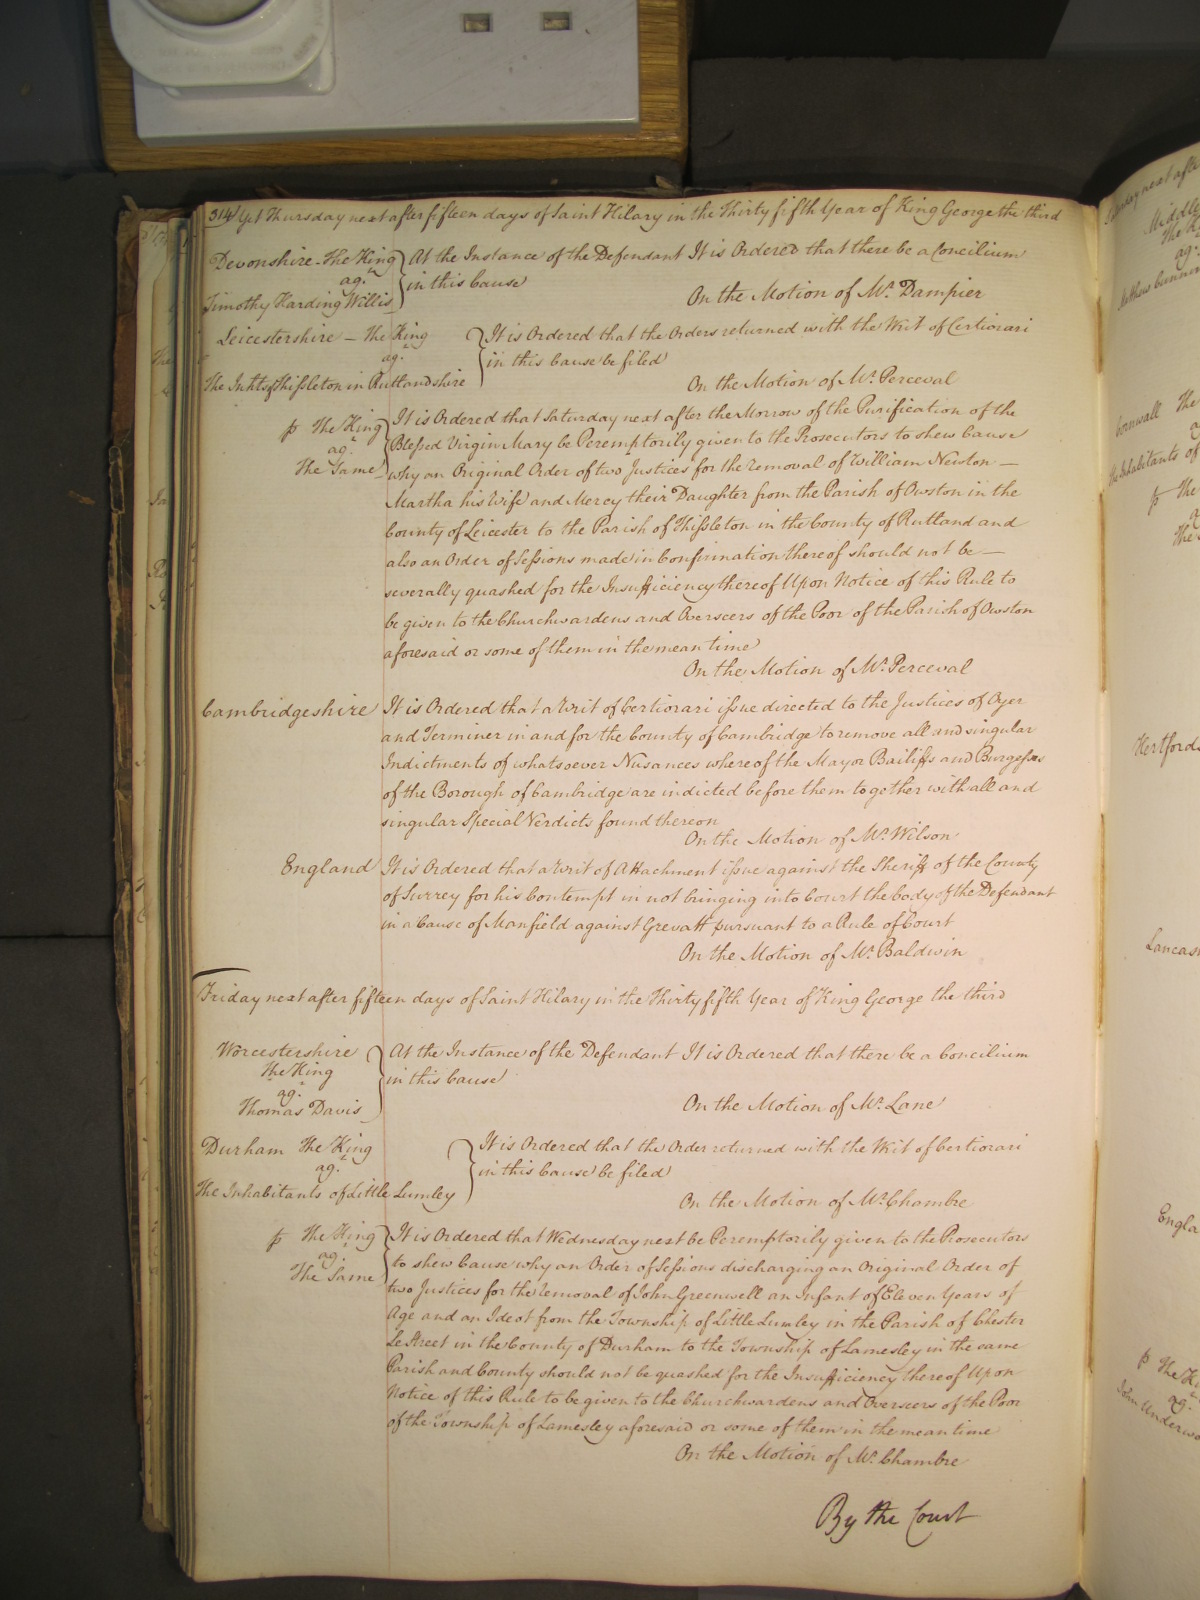 314 Yet Thursday next after fifteen days of Saint Hilary in the Thirty fifth Year of King George the third
Devonshire - The King
agt
Timothy Harding Willis
At the Instance of the Defendant It is Ordered that there be a Concilium
in this Cause
On the Motion of Mr. Dampier
Leicestershire — The King
agt
The Inhts of Thissleton in Rutlandshire
It is Ordered that the Orders returned with the Writ of Certiorari
in this Cause be filed
On the Motion of Mr. Perceval
p The King
agt
The Same
It is Ordered that Saturday next after the Morrow of the Purification of the
Blessed Virgin Mary be Peremptorily given to the Prosecutors to shew Cause
why an Original Order of two Justices for the removal of William Newton —
Martha his Wife and Mercy their Daughter from the Parish of Owston in the
County of Leicester to the Parish of Thissleton in the County of Rutland and
also an Order of Sessions made in Confirmation thereof should not be —
severally quashed for the Insufficiency thereof Upon Notice of this Rule to
be given to the Churchwardens and Overseers of the Poor of the Parish of Owston
aforesaid or some of them in the mean time
On the Motion of Mr. Perceval
Cambridgeshire
It is Ordered that a Writ of Certiorari issue directed to the Justices of Oyer
and Terminer in and for the County of Cambridge to remove all and singular
Indictments of whatsoever Nusances whereof the Mayor Bailiffs and Burgesses
of the Borough of Cambridge are indicted before them together with all and
singular Special Verdicts found thereon
On the Motion of Mr. Wilson
England
It is Ordered that a Writ of Attachment issue against the Sheriff of the County
of Surrey for his Contempt in not bringing into Court the body of the Defendant
in a Cause of Manfield against Grevatt pursuant to a Rule of Court
On the Motion of Mr. Baldwin
Friday next after fifteen days of Saint Hilary in the Thirty fifth Year of King George the third
Worcestershire
The King
agt
Thomas Davis
At the Instance of the Defendant It is Ordered that there be a Concilium
in this Cause
On the Motion of Mr. Lane
Durham The King
agt
The Inhabitants of Little Lumley
It is Ordered that the Order returned with the Writ of Certiorari
in this Cause be filed
On the Motion of Mr. Chambre
p The King
agt
The Same
It is Ordered that Wednesday next be Peremptorily given to the Prosecutors
to shew Cause why an Order of Sessions discharging an Original Order of
two Justices for the removal of John Greenwell an Infant of Eleven Years of
Age and an Ideot from the Township of Little Lumley in the Parish of Chester
Le Street in the County of Durham to the Township of Lamesley in the same
Parish and County should not be quashed for the Insufficiency thereof Upon
Notice of this Rule to be given to the Churchwardens and Overseers of the Poor
of the Township of Lamesley aforesaid or some of them in the mean time
On the Motion of Mr. Chambre
By the Court
Cornwall The
Inhabitants of
p The
The